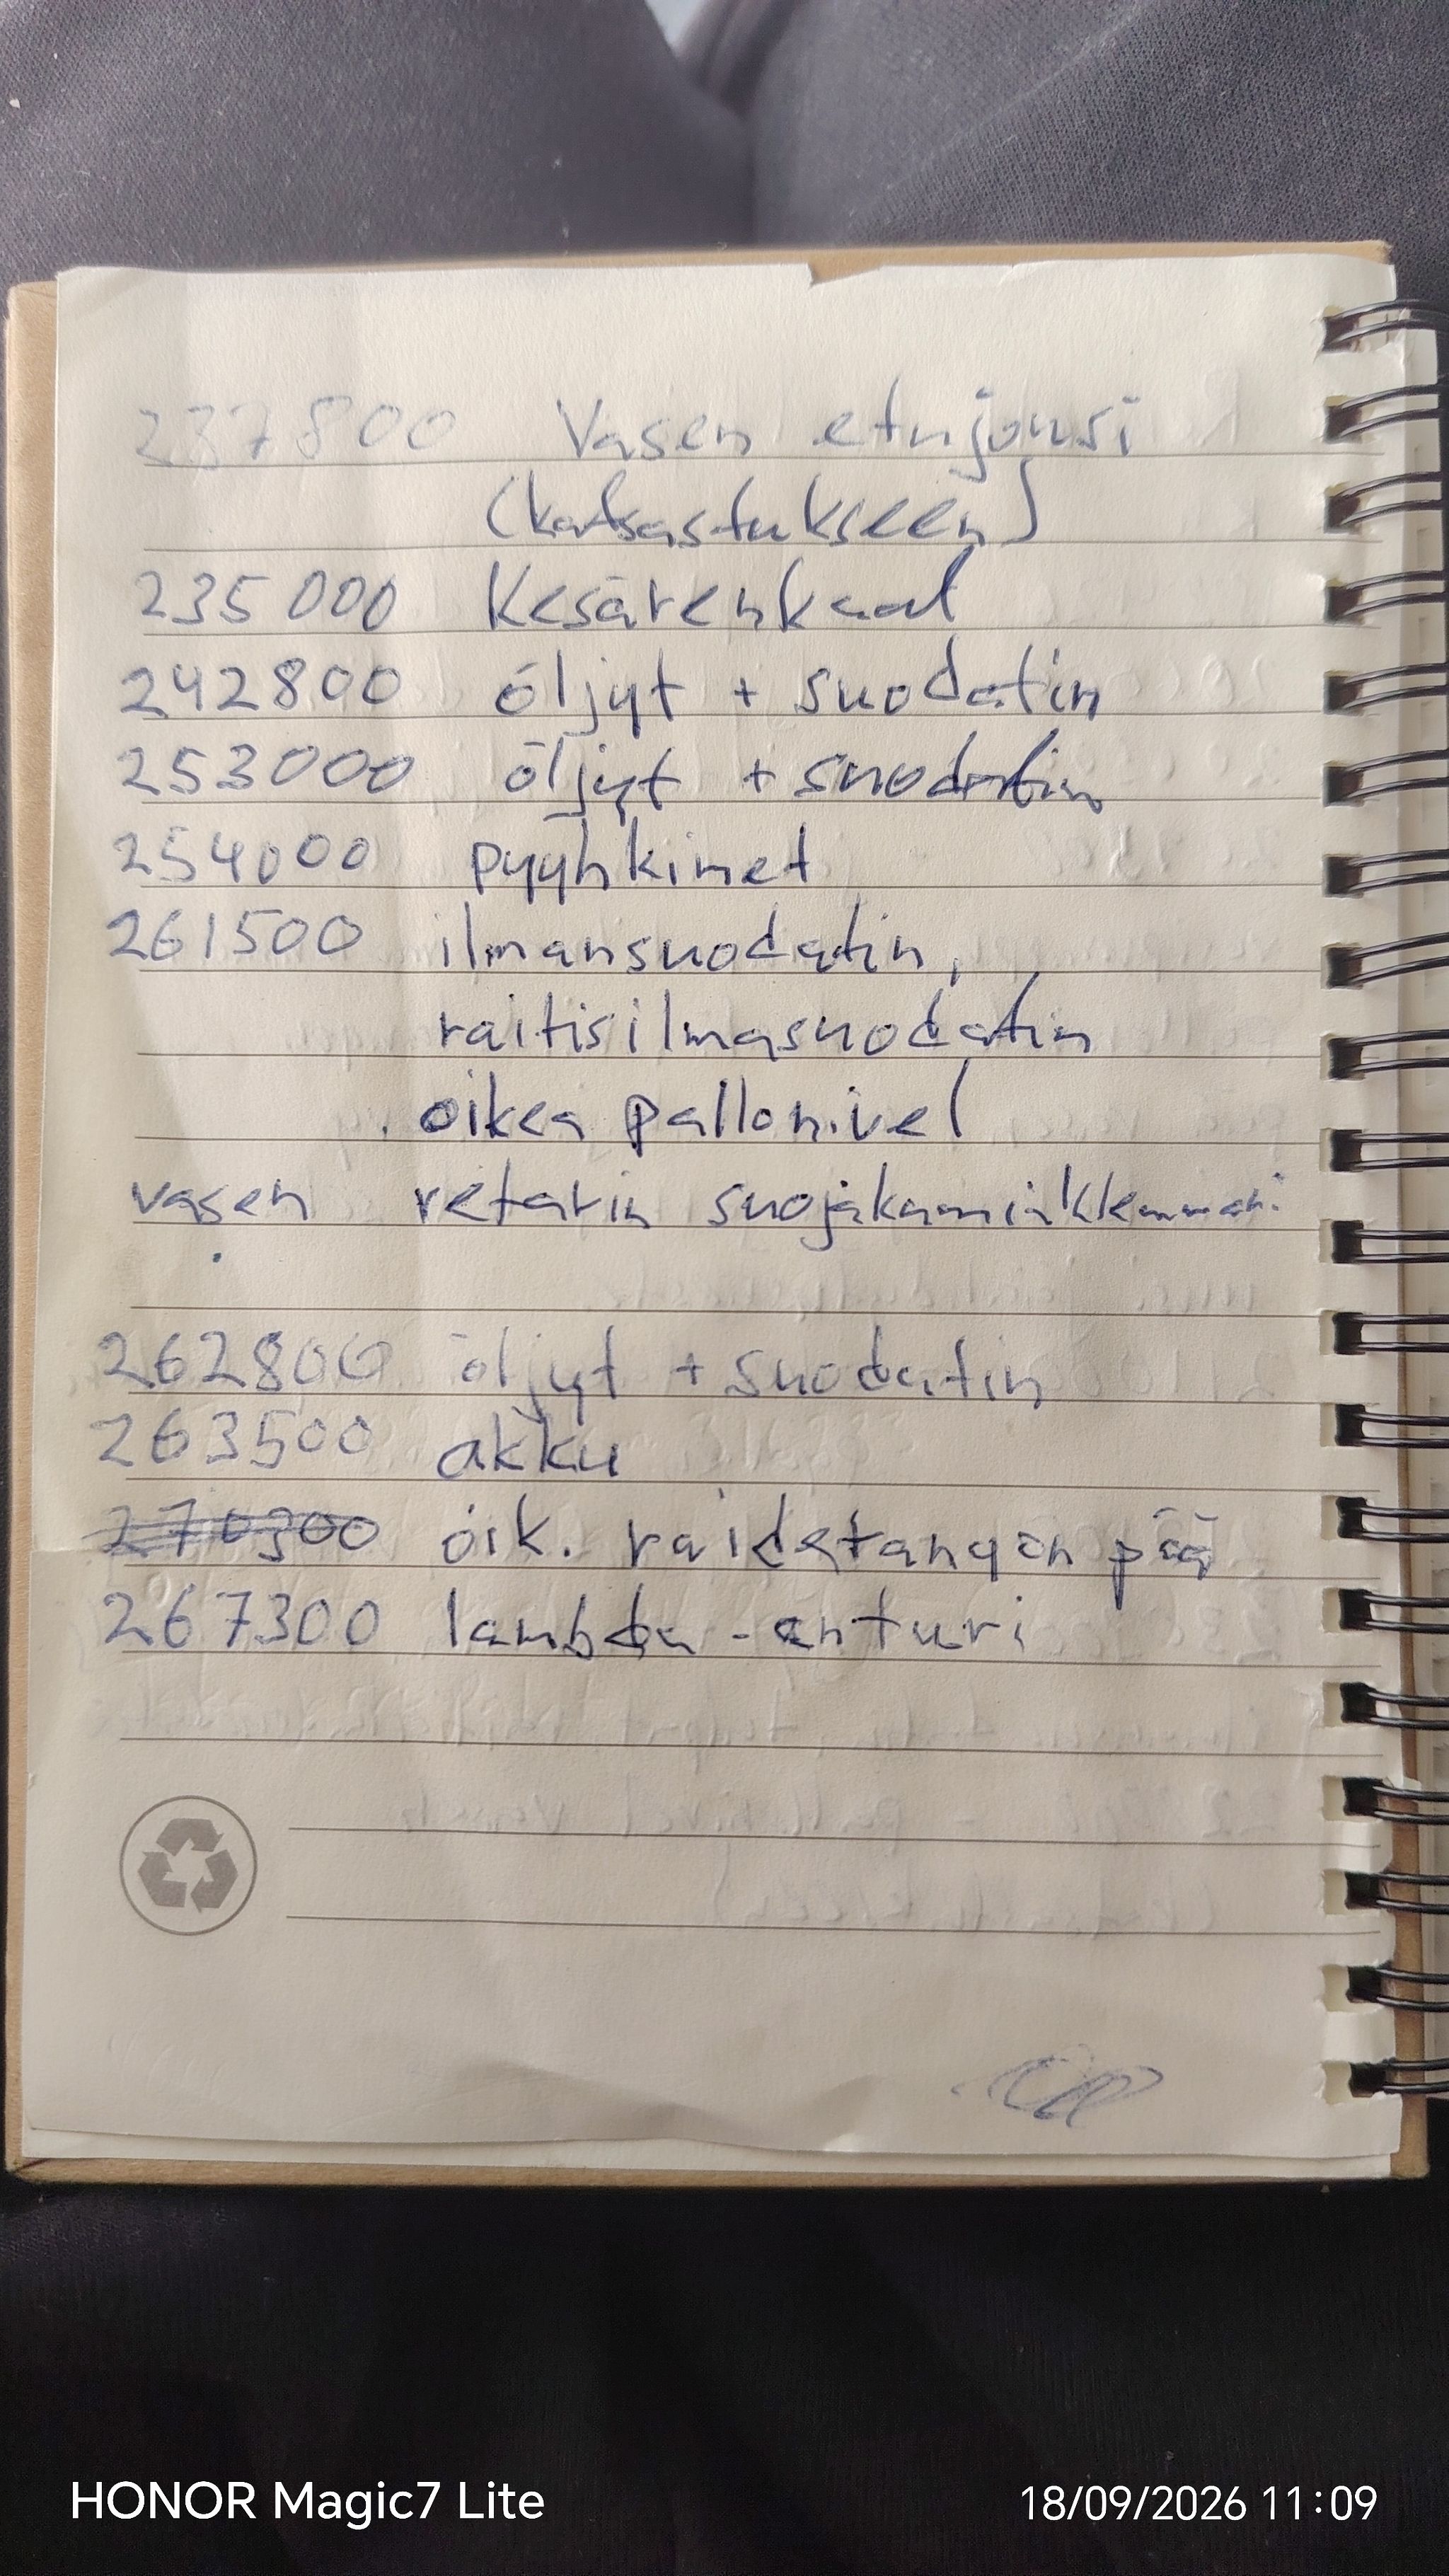 237800 Vasen etujousi
(katsastukseen)
235000 Kesärenkaat
242800 öljyt + suodatin
253000 öljyt + suodatin
254000 pyyhkimet
261500 ilmansuodatin,
raitisilmasuodatin
oikea pallonivel
vasen vetarin suojakuminklemmari
262800 öljyt + suodatin
263500 akku
270300 oik. raidetangon pää
267300 lambda-anturi
HONOR Magic7 Lite
18/09/2026 11:09